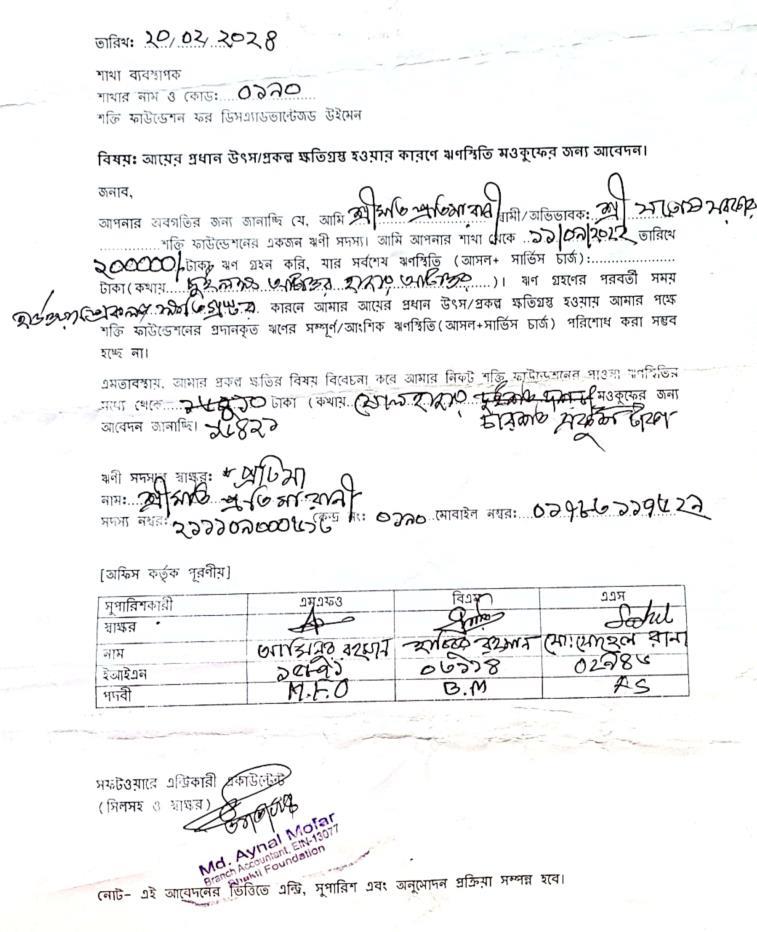 তারিখ: ২০/০২/২০২৪
শাখা ব্যবস্থাপক
শাখার নাম ও কোড:....০১৯০
শক্তি ফাউন্ডেশন ফর ডিসএ্যাডভান্টেজড উইমেন
বিষয়: আয়ের প্রধান উৎস/প্রকল্প ক্ষতিগ্রস্থ হওয়ার কারণে ঋণস্থিতি মওকুফের জন্য আবেদন।
জনাব,
আপনার অবগতির জন্য জানাচ্ছি যে, আমি শ্রীমতি প্রতিমা রানী স্বামী/অভিভাবক: শ্রী
শক্তি ফাউন্ডেশনের একজন ঋণী সদস্য। আমি আপনার শাখা থেকে ..১১/০৯/২০২২ তারিখে
২০০০০০/- টাকা ঋণ গ্রহন করি, যার সর্বশেষ ঋণস্থিতি (আসল+ সার্ভিস চার্জ):
টাকা (কথায়: )। ঋণ গ্রহণের পরবর্তী সময়
কারনে আমার আয়ের প্রধান উৎস/প্রকল্প ক্ষতিগ্রস্থ হওয়ায় আমার পক্ষে
শক্তি ফাউন্ডেশনের প্রদানকৃত ঋণের সম্পূর্ণ/আংশিক ঋণস্থিতি (আসল+সার্ভিস চার্জ) পরিশোধ করা সম্ভব
হচ্ছে না।
এমতাবস্থায়, আমার প্রকল্প ক্ষতির বিষয় বিবেচনা করে আমার নিকট শক্তি ফাউন্ডেশনের পাওনা ঋণস্থিতির
মধ্যে থেকে টাকা (কথায়: ষোল হাজার মওকুফের জন্য
আবেদন জানাচ্ছি। ১৬৪২১ চারশত একুশ টাকা
ঋণী সদস্যর স্বাক্ষর: * প্রতিমা
নাম: শ্রীমতি প্রতিমা রানী
সদস্য নম্বর: কেন্দ্র নং: ০১৯০ মোবাইল নম্বর:
[অফিস কর্তৃক পূরণীয়]
সুপারিশকারী এমএফও বিএম এএস
স্বাক্ষর
নাম রহমান রহমান মো: সোহেল রানা
ইআইএন ০৬১১৪
পদবী M.F.O B.M AS
সফটওয়ারে এন্ট্রিকারী একাউন্টেন্ট
(সিলসহ ও স্বাক্ষর)
Md. Aynal Molar
Branch Accountant, EIN-13077
Shakti Foundation
নোট- এই আবেদনের ভিত্তিতে এন্ট্রি, সুপারিশ এবং অনুমোদন প্রক্রিয়া সম্পন্ন হবে।